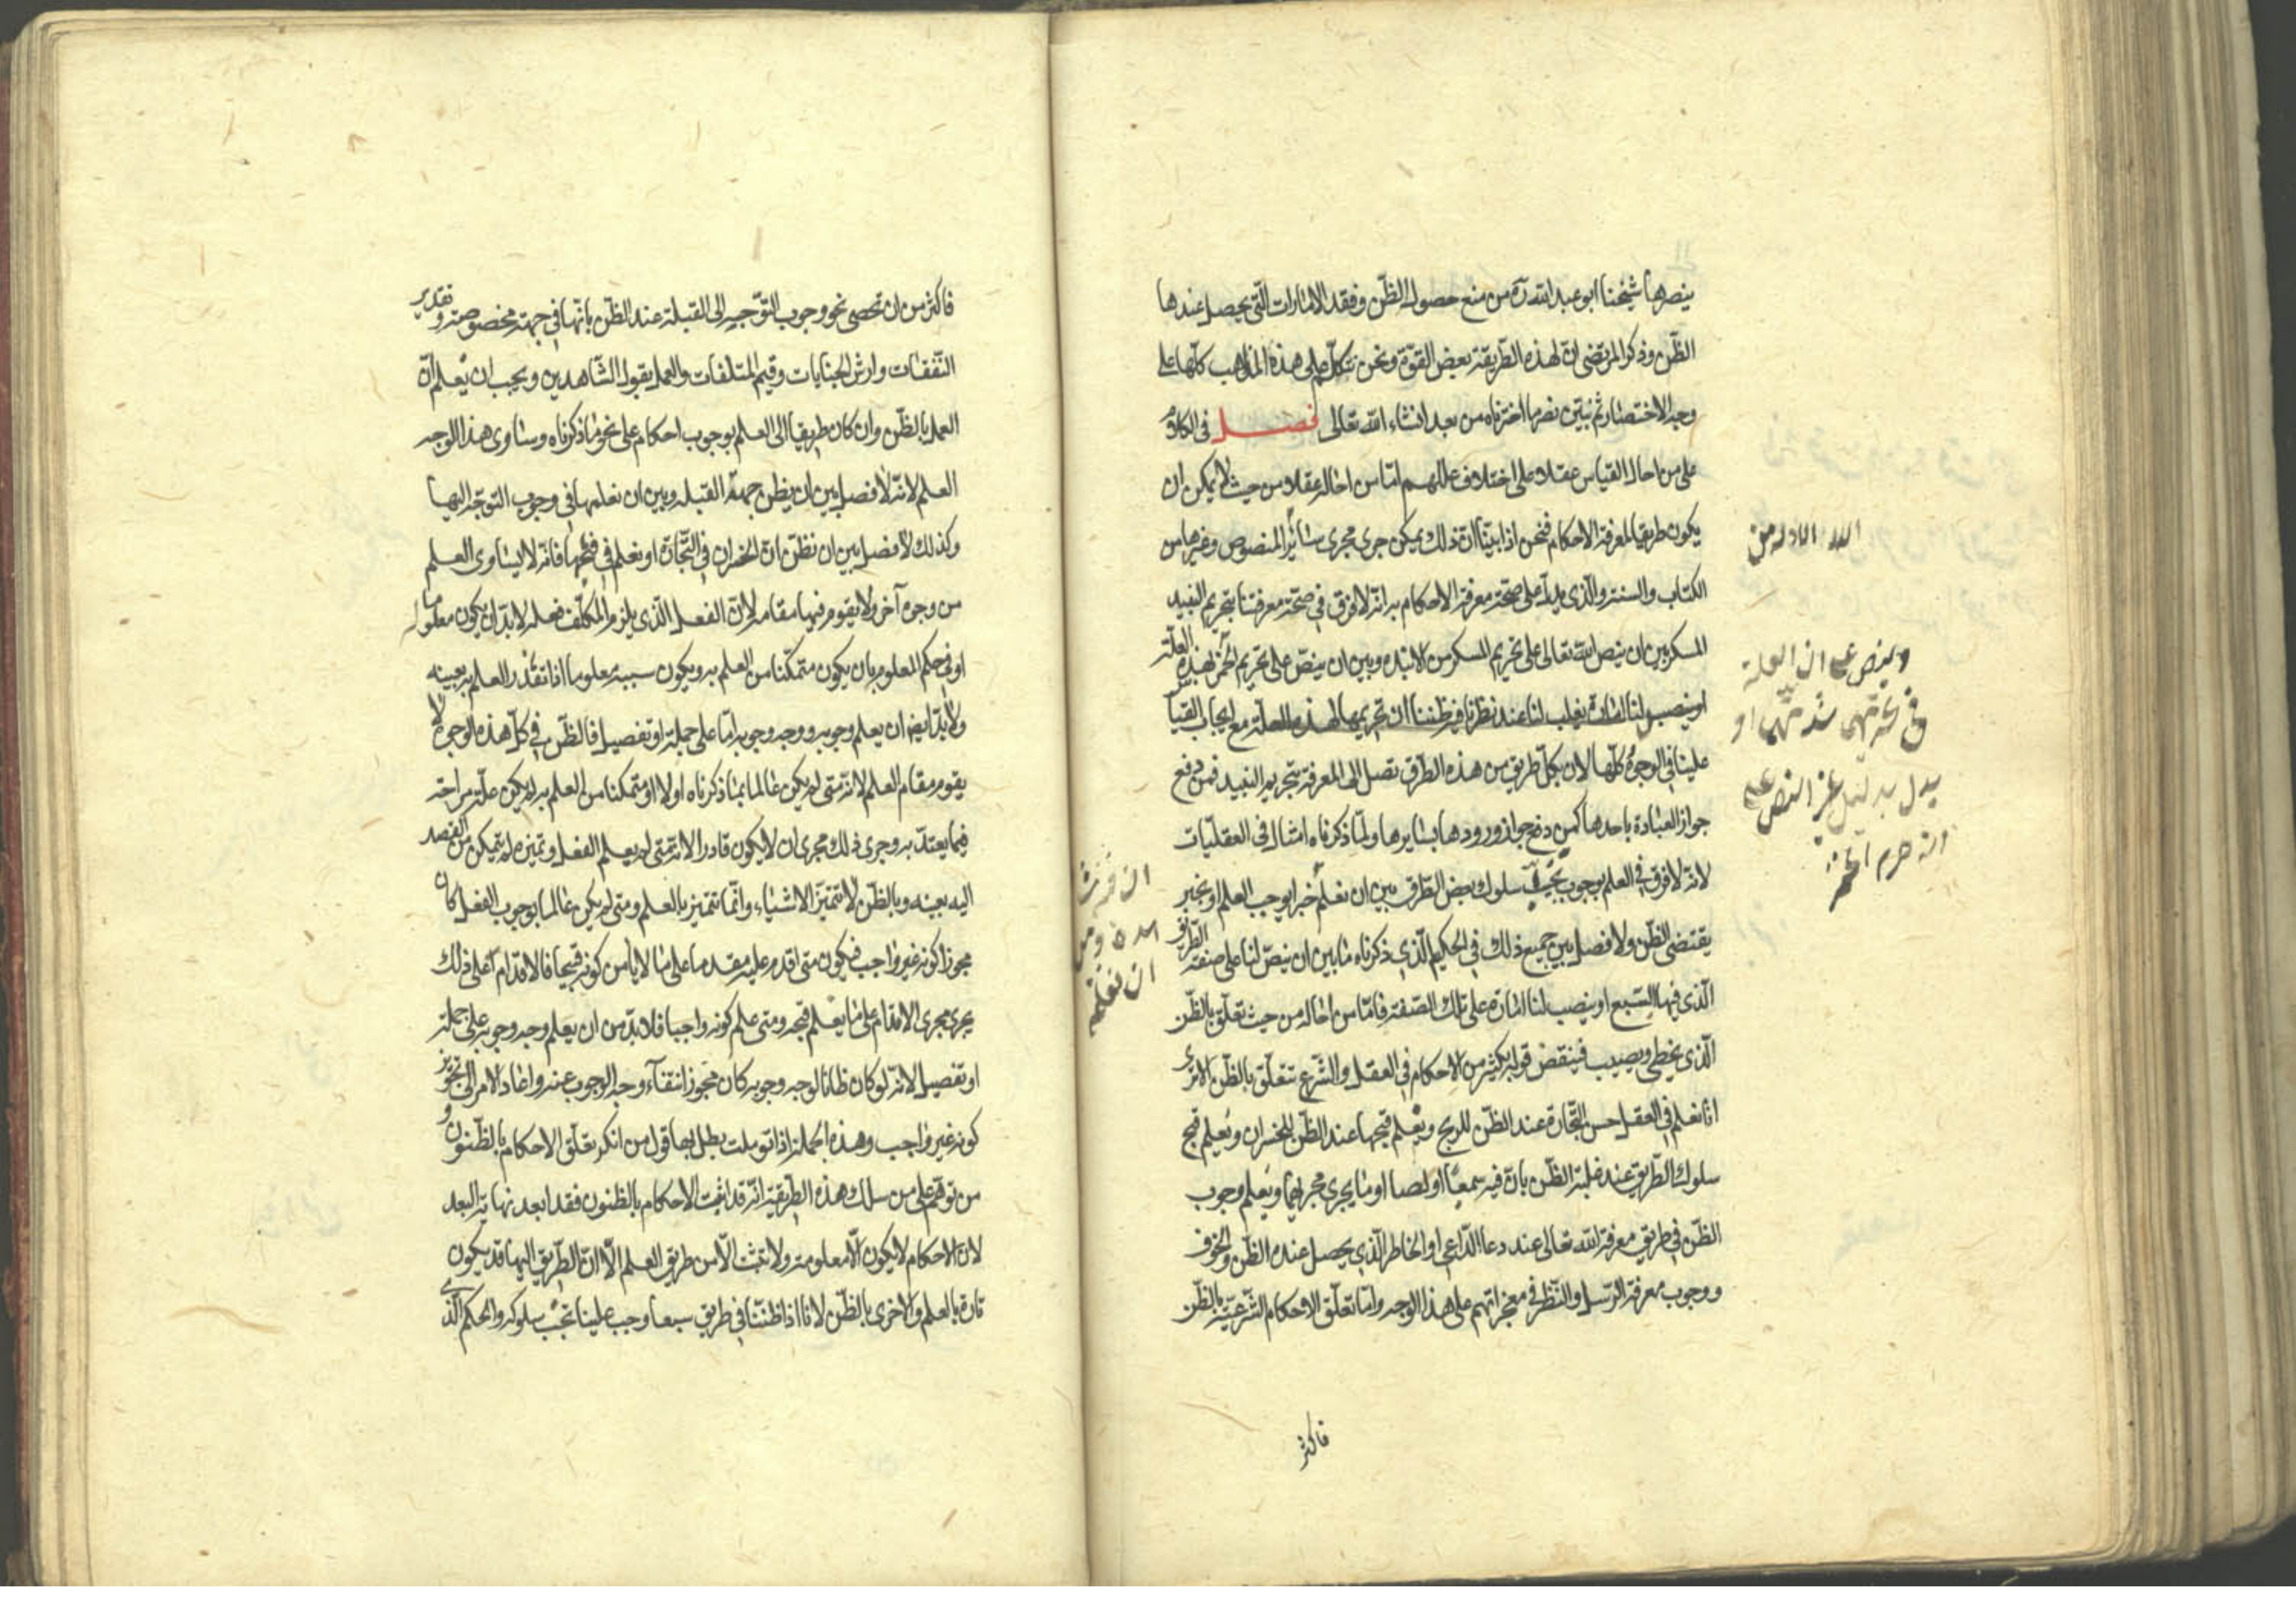 ينصرها شيخنا ابو عبد الله ره من منع حصول الظن وفقد الامارات التي يحصل عندها
الظن وذكر المرتضى ان لهذه الطريقة بعض القوة ونحن نتكلم على هذه المذاهب كلها على
وجه الاختصار ثم نبين نصر ما اخترناه من بعد انشاء الله تعالى فصل في الكلام
على من احال القياس عقلا على اختلاف عللهم اما من احاله عقلا من حيث لا يمكن ان
يكون طريقا لمعرفة الاحكام فنحن اذا بينا ان ذلك يمكن جرى مجرى سائر المنصوص وغيرها من
الكتاب والسنة والذي يدل على صحة معرفة الاحكام به انه لا فرق في صحة معرفتنا بتحريم النبيذ
المسكر بين ان ينص الله تعالى على تحريم المسكر من الانبذة وبين ان ينص على تحريم الخمر لهذه العلة
او ينصب لنا امارة يغلب لنا عند نظرنا فيه ظننا ان تحريمها لهذه العلة مع ايجاب القياس
علينا في الوجوه كلها لان بكل طريق من هذه الطرق نصل الى المعرفة بتحريم النبيذ فمن دفع
جواز العبادة باحدها كمن دفع جواز ورودها بسايرها ولما ذكرناه امثال في العقليات
لانه لا فرق في العلم بوجوب تجنب سلوك بعض الطرق بين ان نعلم خبرا يوجب العلم او بخبر
يقتضي الظن ولا فصل بين جميع ذلك في الحكم الذي ذكرناه ما بين ان ينص لنا على صفة الطريق
الذي فيها السبع او ينصب لنا امارة على تلك الصفة فاما من احاله من حيث تعلق بالظن
الذي يخطي ويصيب فينقض قوله بكثير من الاحكام في العقل والشرع تتعلق بالظن الا ترى
انا نعلم في العقل حسن التجارة عند الظن للربح ونعلم قبحها عند الظن للخسران ونعلم قبح
سلوك الطريق عند غلبة الظن بان فيه سبعا او لصا او ما يجري مجريهما ونعلم وجوب
الظن في طريق معرفة الله تعالى عند دعا الداعي او الخاطر الذي يحصل عنده الظن والخوف
ووجوب معرفة الرسل والنظر في معجزاتهم على هذا الوجه واما تعلق الاحكام الشرعية بالظن
فاكثر
الادلة من
وينص على ان العلة
في تحريمها شدتها او
يدل بدليل غير النص على
انه حرم الخمر
ان نعلمه
فاكثر من ان تحصى نحو وجوب التوجه الى القبلة عند الظن بانها في جهة مخصوصة وتقدير
النفقات وارش الجنايات وقيم المتلفات والعمل بقول الشاهدين ويجب ان يعلم ان
العمل بالظن وان كان طريقا الى العلم بوجوب احكام على نحو ما ذكرناه وساوى هذا الوجه
العلم لانه لا فصل بين ان يظن جهة القبلة وبين ان نعلمها في وجوب التوجه اليها
وكذلك لا فصل بين ان نظن ان الخسران في التجارة او نعلم في قبحها فانه لا يساوى العلم
من وجوه آخر ولا يقوم فيها مقامه لان الفعل الذي يلزم المكلف فعله لا بد ان يكون معلوما له
او في حكم المعلوم بان يكون متمكنا من العلم به ويكون سببه معلوما اذا تعذر العلم به بعينه
ولا بد ايضا ان يعلم وجوبه ووجه وجوبه اما على جملة او تفصيل فالظن في كل هذه الوجوه لا
يقوم مقام العلم لانه متى لم يكن عالما بما ذكرناه اولا او متمكنا من العلم به لم يكن علته مزاحة
فيما يعتد به وجرى ذلك مجرى ان لا يكون قادرا لانه متى لم يعلم الفعل وتميزه لم يتمكن من القصد
اليه بعينه وبالظن لا تتميز الاشياء وانما تتميز بالعلم ومتى لم يكن عالما بوجوب الفعل كان
مجوزا كونه غير واجب فيكون متى اقدم عليه مقدما على ما لا يأمن كونه قبيحا فالاقدام على ذلك
يجري مجرى الاقدام على ما يعلم قبحه ومتى علم كونه واجبا فلا بد من ان يعلم وجه وجوبه على جملة
او تفصيل لانه لو كان ظانا لوجه وجوبه كان مجوزا انتفاء وجه الوجوب عنه واعاد الامر الى تجويز
كونه غير واجب وهذه الجملة اذا تؤملت بطل بها قول من انكر تعلق الاحكام بالظنون و
من توهم على من سلك هذه الطريقة انه قد اثبت الاحكام بالظنون فقد ابعد نهاية البعد
لان الاحكام لا يكون الا معلومة ولا تثبت الا من طريق العلم الا ان الطريق اليها قد يكون
تارة بالعلم والاخرى بالظن لانا اذا ظننا في طريق سبعا وجب علينا تجنب سلوكه والحكم الذي